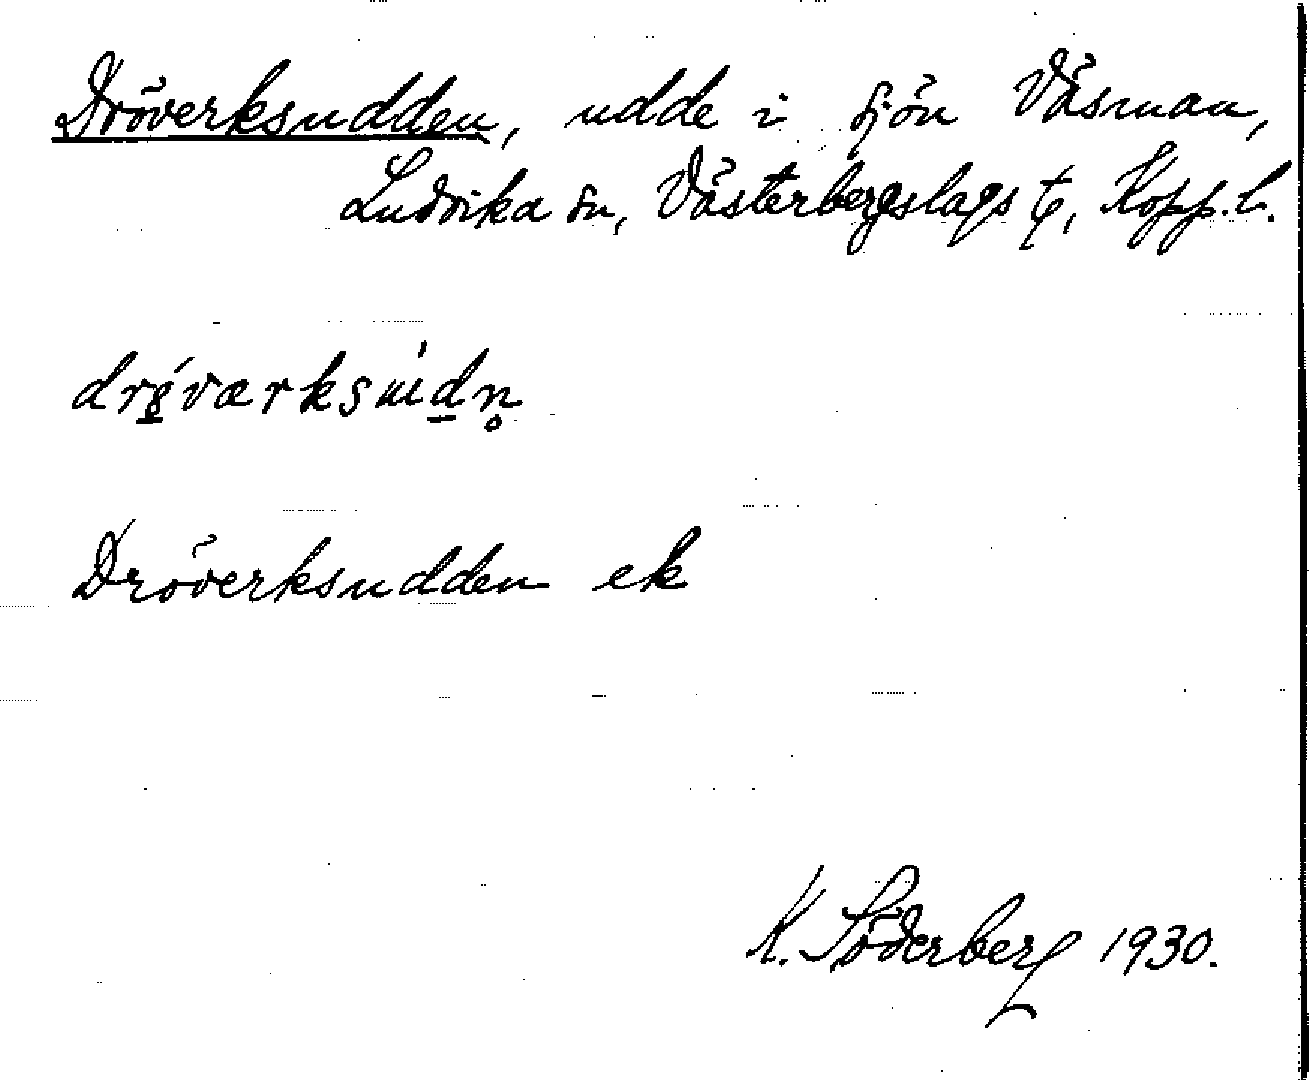 Dröverksudden, udde i sjön Väsman,
Ludvika sn, Västerbergslags tg, Kopp. l.
drǿ̱værksùḏn̥
Dröverksudden ek
K. Söderberg 1930.